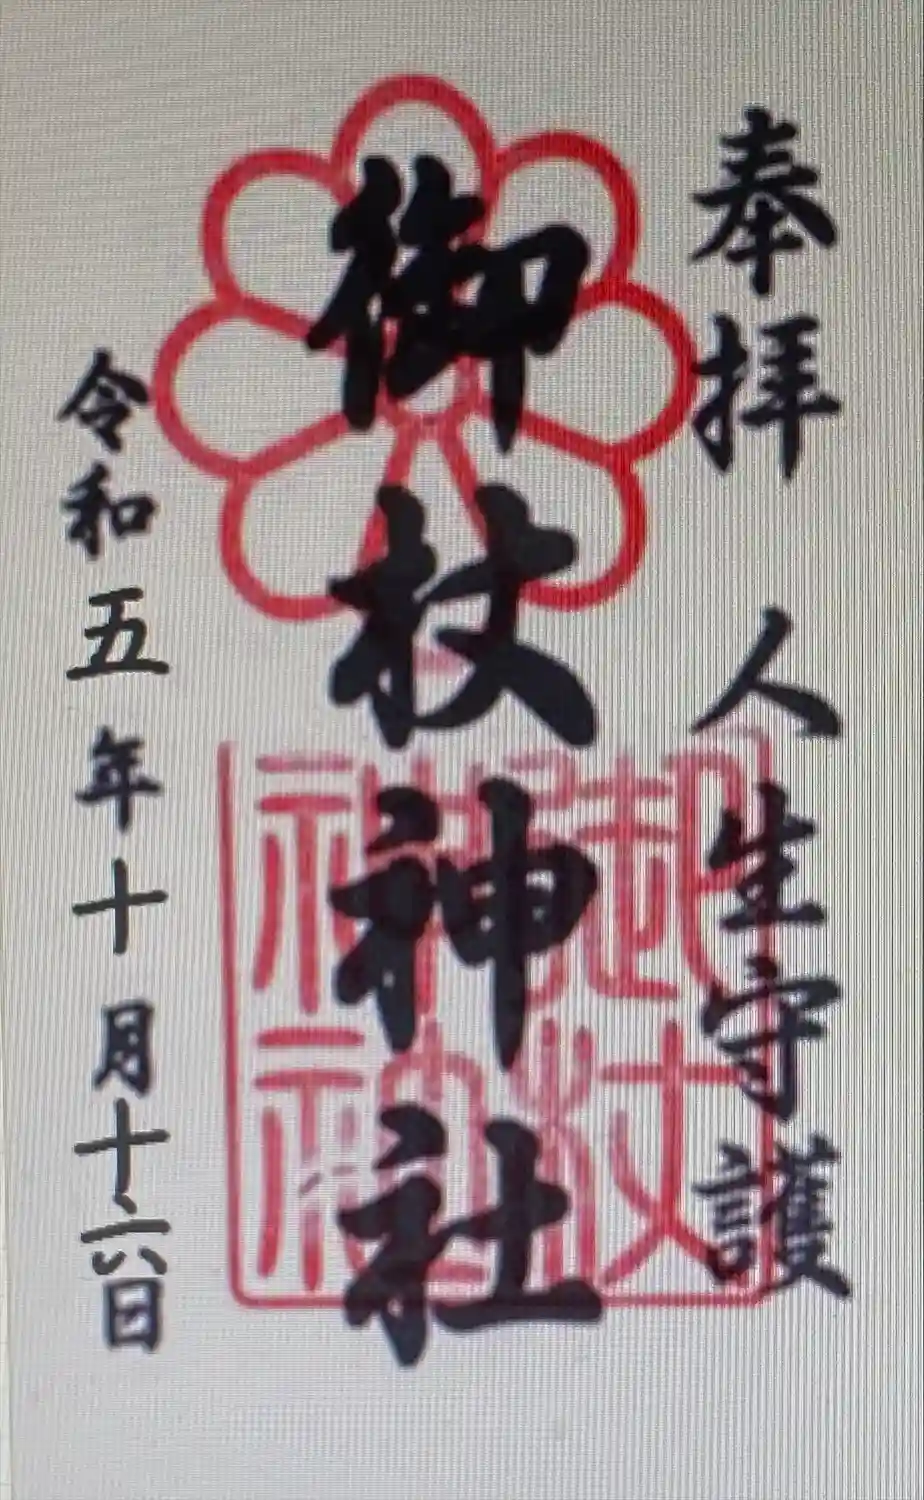 奉拝 人生守護
御杖神社
令和五年十月十六日
御杖神社